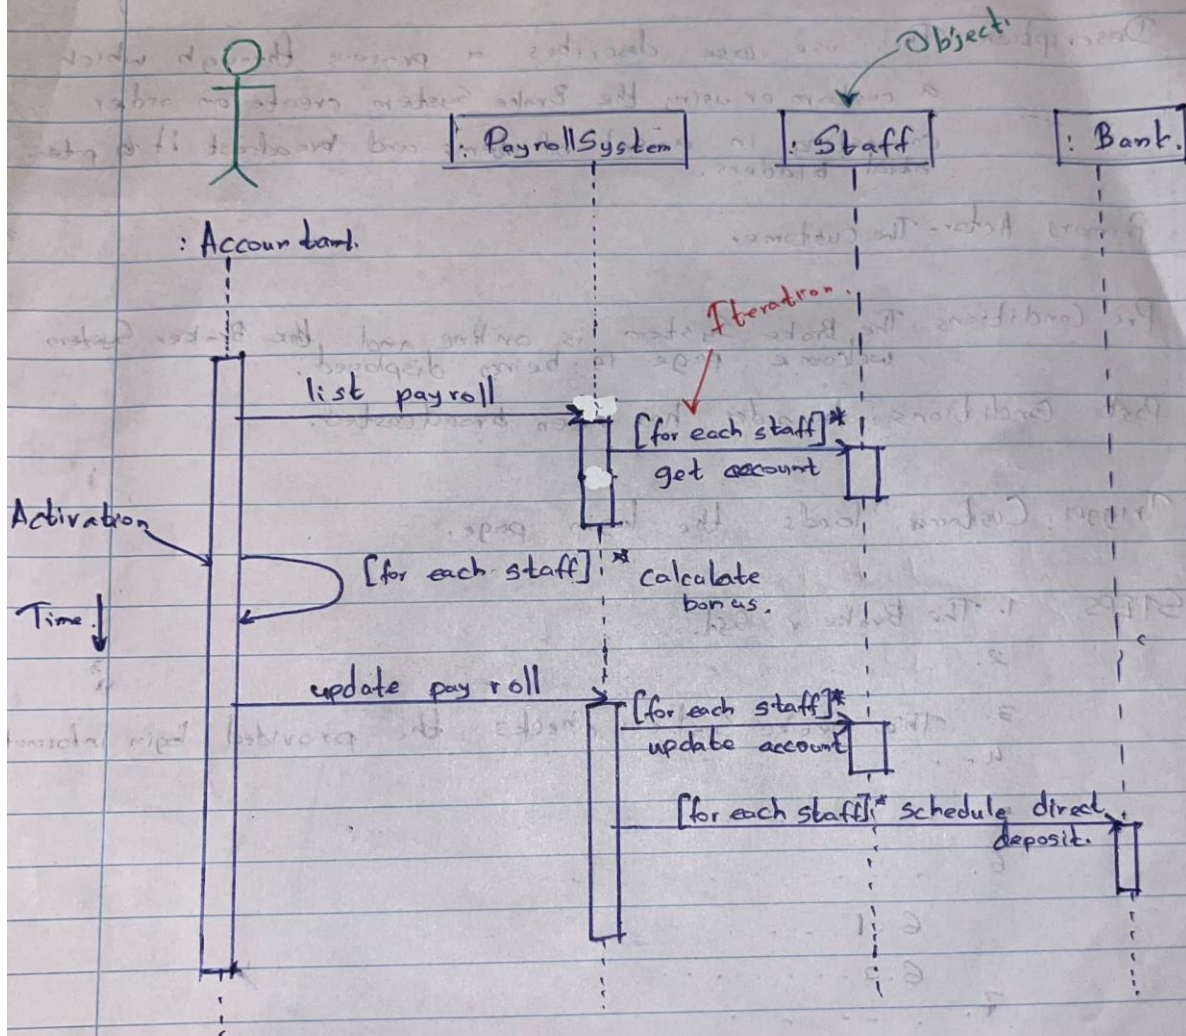 Object.
: PayrollSystem
: Staff
: Bank.
: Accountant.
Iteration.
list payroll
[for each staff]*
get account
Activation
[for each staff]* calculate
bonus.
Time
update payroll
[for each staff]*
update account
[for each staff]* schedule direct
deposit.